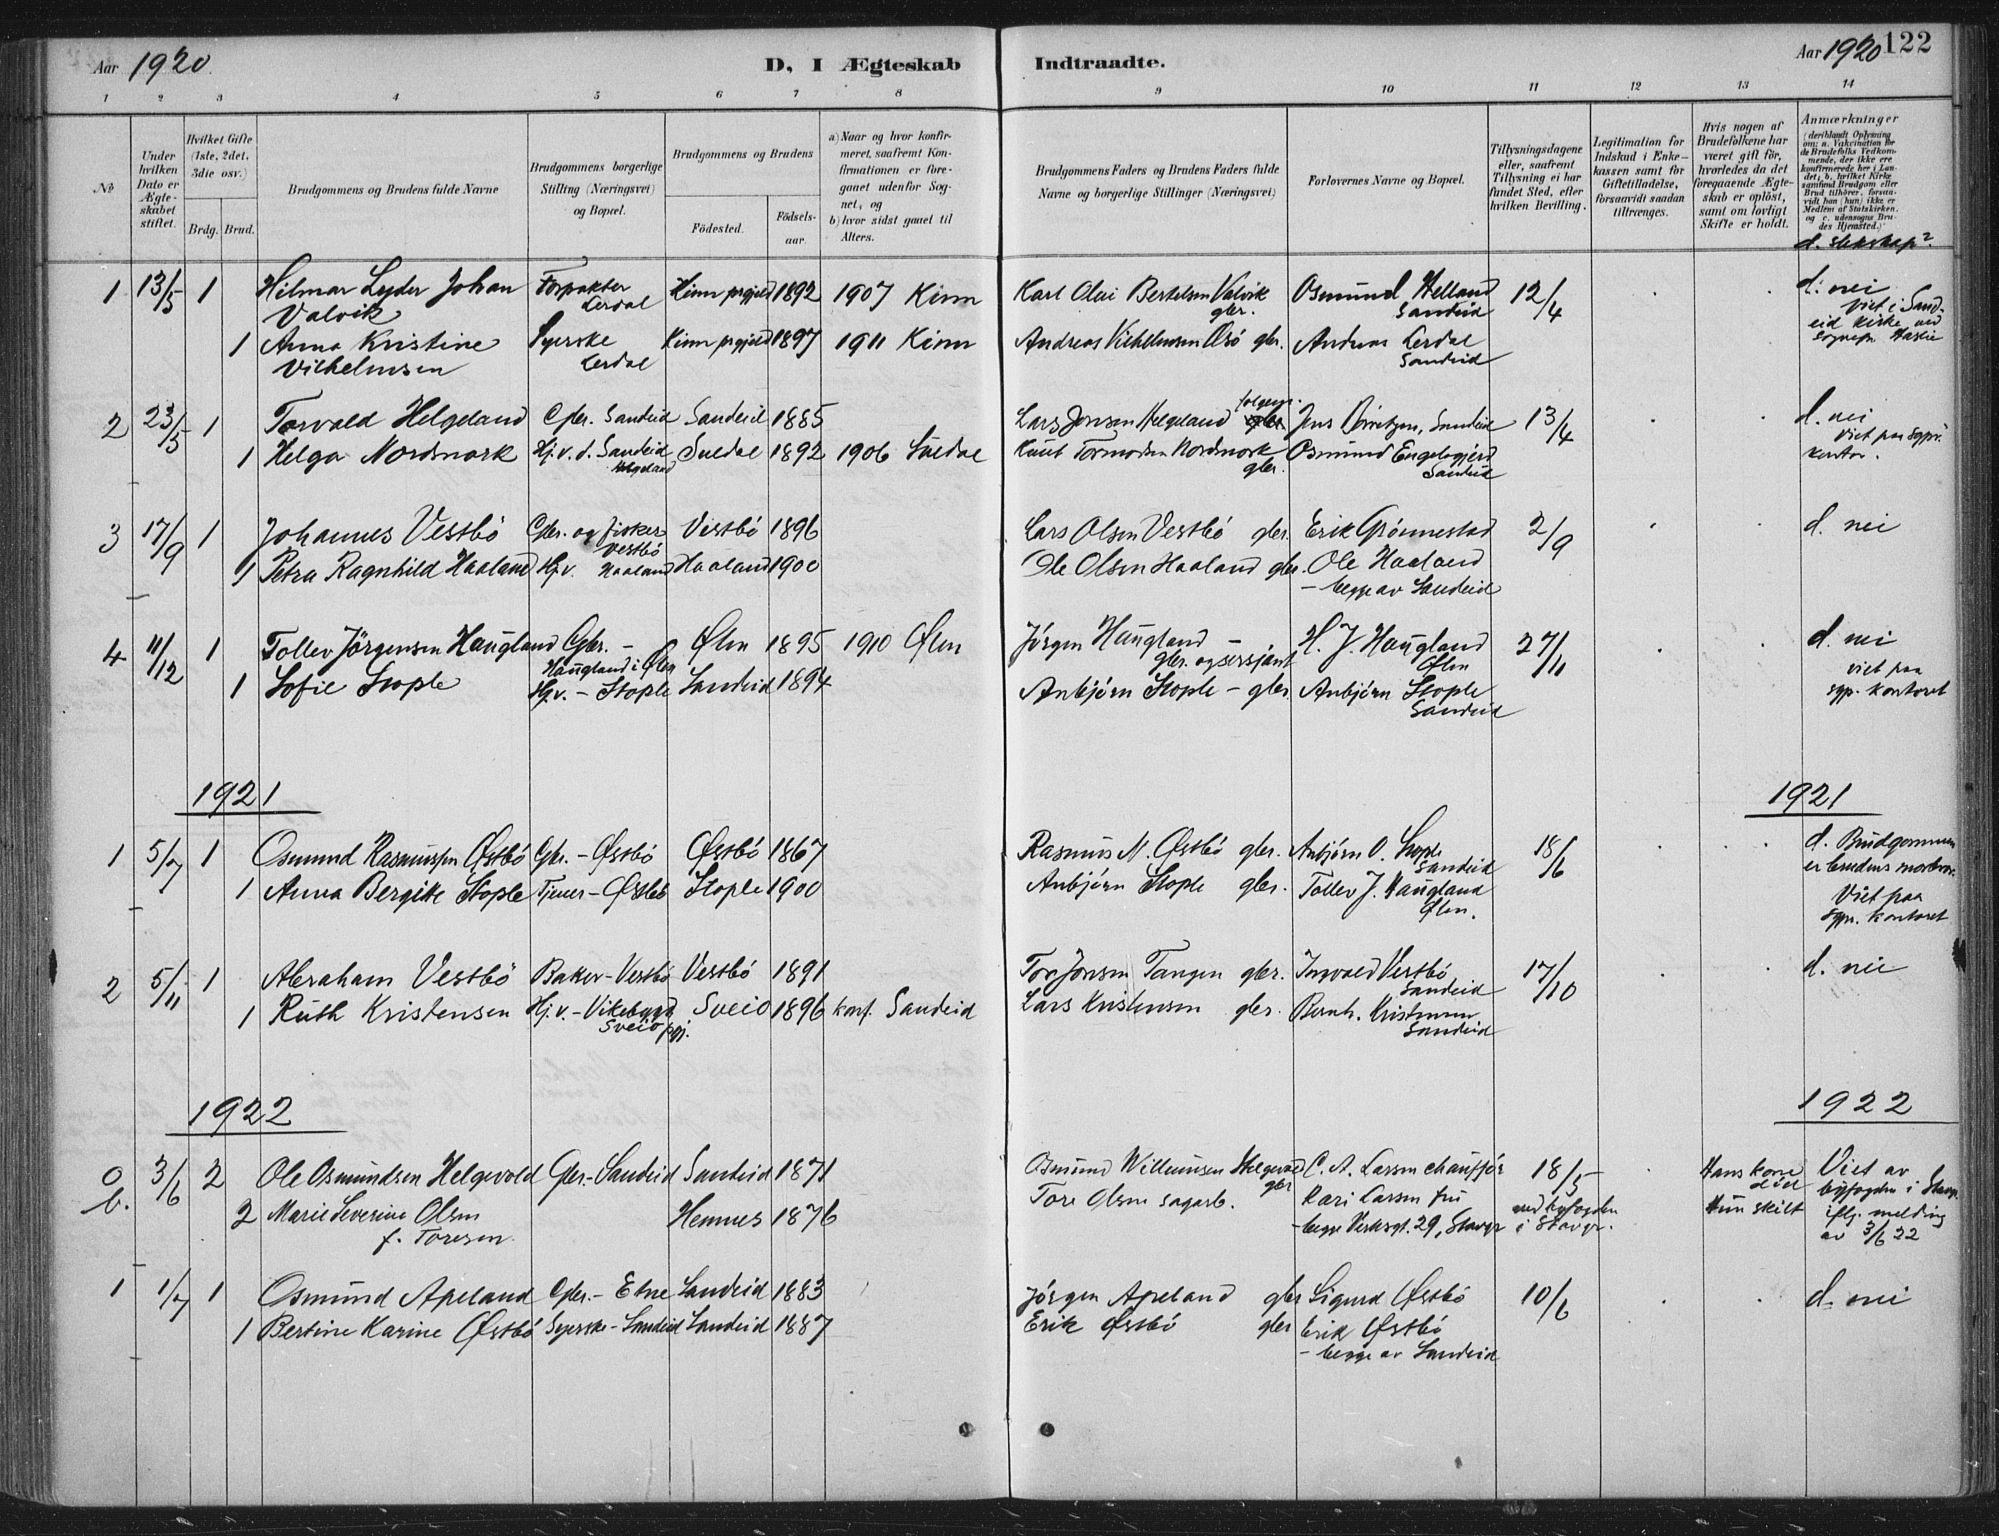 Aar 1920
D, I Ægteskab
Indtraadte.
Aar 1920 122
1 2 3 4 5 6 7 8 9 10 11 12 13 14
No
Under hvilken Dato er Ægteskabet stiftet.
Hvilket Gifte (1ste, 2det, 3die osv.)
Brdg. Brud.
Brudgommens og Brudens fulde Navne
Brudgommens borgerlige Stilling (Næringsvei) og Bopæl.
Brudgommens og Brudens
Fødested.
Fødselsaar.
a) Naar og hvor konfirmeret, saafremt Konfirmationen er foregaaet udenfor Sognet, og
b) hvor sidst gaaet til Alters.
Brudgommens Faders og Brudens Faders fulde Navne og borgerlige Stillinger (Næringsvei)
Forlovernes Navne og Bopæl.
Tillysningsdagene eller, saafremt Tillysning ei har fundet Sted, efter hvilken Bevilling.
Legitimation for Indskud i Enkekassen samt for Giftetilladelse, forsaavidt saadan tiltrænges.
Hvis nogen af Brudefolkene har været gift før, hvorledes da det foregaaende Ægteskab er opløst, samt om lovligt Skifte er holdt.
Anmærkninger
(deriblandt Oplysning om: a. Vakcination for de Brudefolks Vedkommende, der ikke ere konfirmerede her i Landet; b. hvilket Kirkesamfund Brudgom eller Brud tilhører, forsaavidt han (hun) ikke er Medlem af Statskirken, og c. udensogns Brudes Hjemsted.)
d. slekskap?
1 13/5 1 Hilmar Leder Johan Forpakter Kinn prgjeld 1892 1907 Kinn Karl Olai Bertelsen Valvik Osmund Helland 12/4 d. nei
Valvik Lerdal gbr. Sandeid viet i Sand-
1 Anna Kristine Syerske Kinn prgjeld 1897 1911 Kinn Andreas Vilhelmsen gbr. Andreas Lerdal eid kirke ved
Vilhelmsen Lerdal Sandeid sognepr.
2 23/5 1 Torvald Helgeland Gbr. Sandeid Sandeid 1885 Lars Jonsen Helgeland Jens Sandeid 13/4 d. nei
1 Helga Nordmork Hj.v. d. Sandeid Suldal 1892 1906 Suldal Knut Tormodsen Nordmork Osmund Engelsgjerd viet paa sgpr.
Helgeland gbr. Sandeid kontor.
3 17/9 1 Johannes Vestbö Gbr. og fisker Vestbö 1896 Lars Olsen Vestbö gbr. Erik Grönnestad 2/9 d. nei
Vestbö
1 Petra Ragnhild Haaland Hj.v. Haaland Haaland 1900 Ole Olsen Haaland gbr. Ole Haaland
- begge av Sandeid
4 11/12 1 Tollev Jörgensen Haugland Gbr. - Ølen 1895 1910 Ølen Jörgen Haugland H. J. Haugland 27/11 d. nei
Haugland i Ølen gbr. og sersjant Ølen viet paa
1 Sofie Stople Hj.v. - Stople Sandeid 1894 Anbjörn Stople - gbr. Anbjörn Stople sgp. kontoret
Sandeid
1921 1921
1 5/7 1 Osmund Rasmussen Østbö Gbr. - Østbö Østbö 1867 Rasmus M. Østbö gbr. Anbjörn O. Stople 18/6 d. Brudgommen
Sandeid er brudens morbror.
1 Anna Bergitte Stople Tjener - Østbö Stople 1900 Anbjörn Stople gbr. Tollev J. Haugland Viet paa
Ølen. sgpr. kontoret
2 5/11 1 Abraham Vestbö Baker - Vestbö Vestbö 1891 Tor Jonsen Tangen gbr. Ingvald Vestbö 17/10 d. nei
Sandeid
1 Ruth Kristensen Hj.v. - Vikebygd Sveio 1896 konf. Sandeid Lars Kristensen gbr. Bernh. Kristensen
Sveio pgj. Sandeid
1922 1922
0 b. 3/6 2 Ole Osmundsen Helgevold Gbr. - Sandeid Sandeid 1871 Osmund Willumsen Helgevold C. A. Larsen chauffør 18/5 Hans kone Viet av
gbr død byfogden i Stavgr.
2 Marie Severine Olsen Hennes 1876 Tore Olsen sagarb. Kari Larsen fru ved byfogden Hun skilt iflg. melding
f. Toresen. - begge Verksgt. 29, Stavgr i Stavgr. av 3/6 22
1 1/7 1 Osmund Apeland Gbr. - Etne Sandeid 1883 Jörgen Apeland gbr Sigurd Østbö 10/6 d. nei
1 Bertine Karine Østbö Syerske - Sandeid Sandeid 1887 Erik Østbö gbr Erik Østbö
- begge av Sandeid